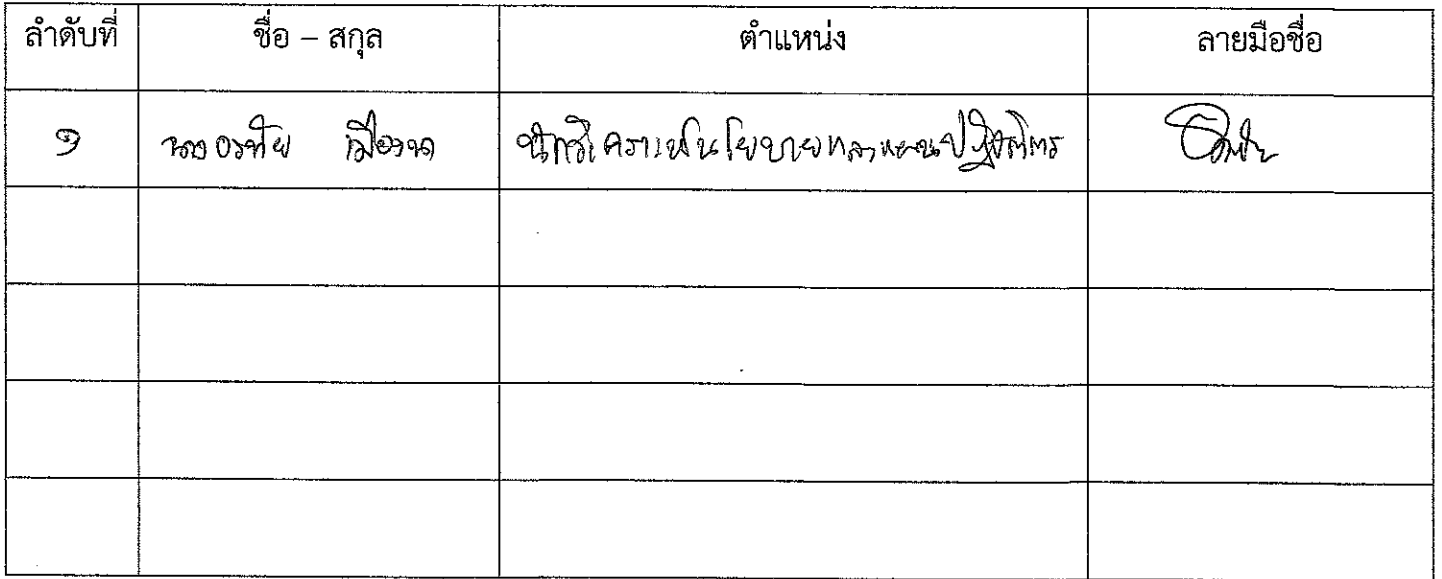 ลำดับที่ ชื่อ – สกุล ตำแหน่ง ลายมือชื่อ
๑ นางอรทัย เมืองนา นักวิเคราะห์นโยบายและแผนปฏิบัติการ